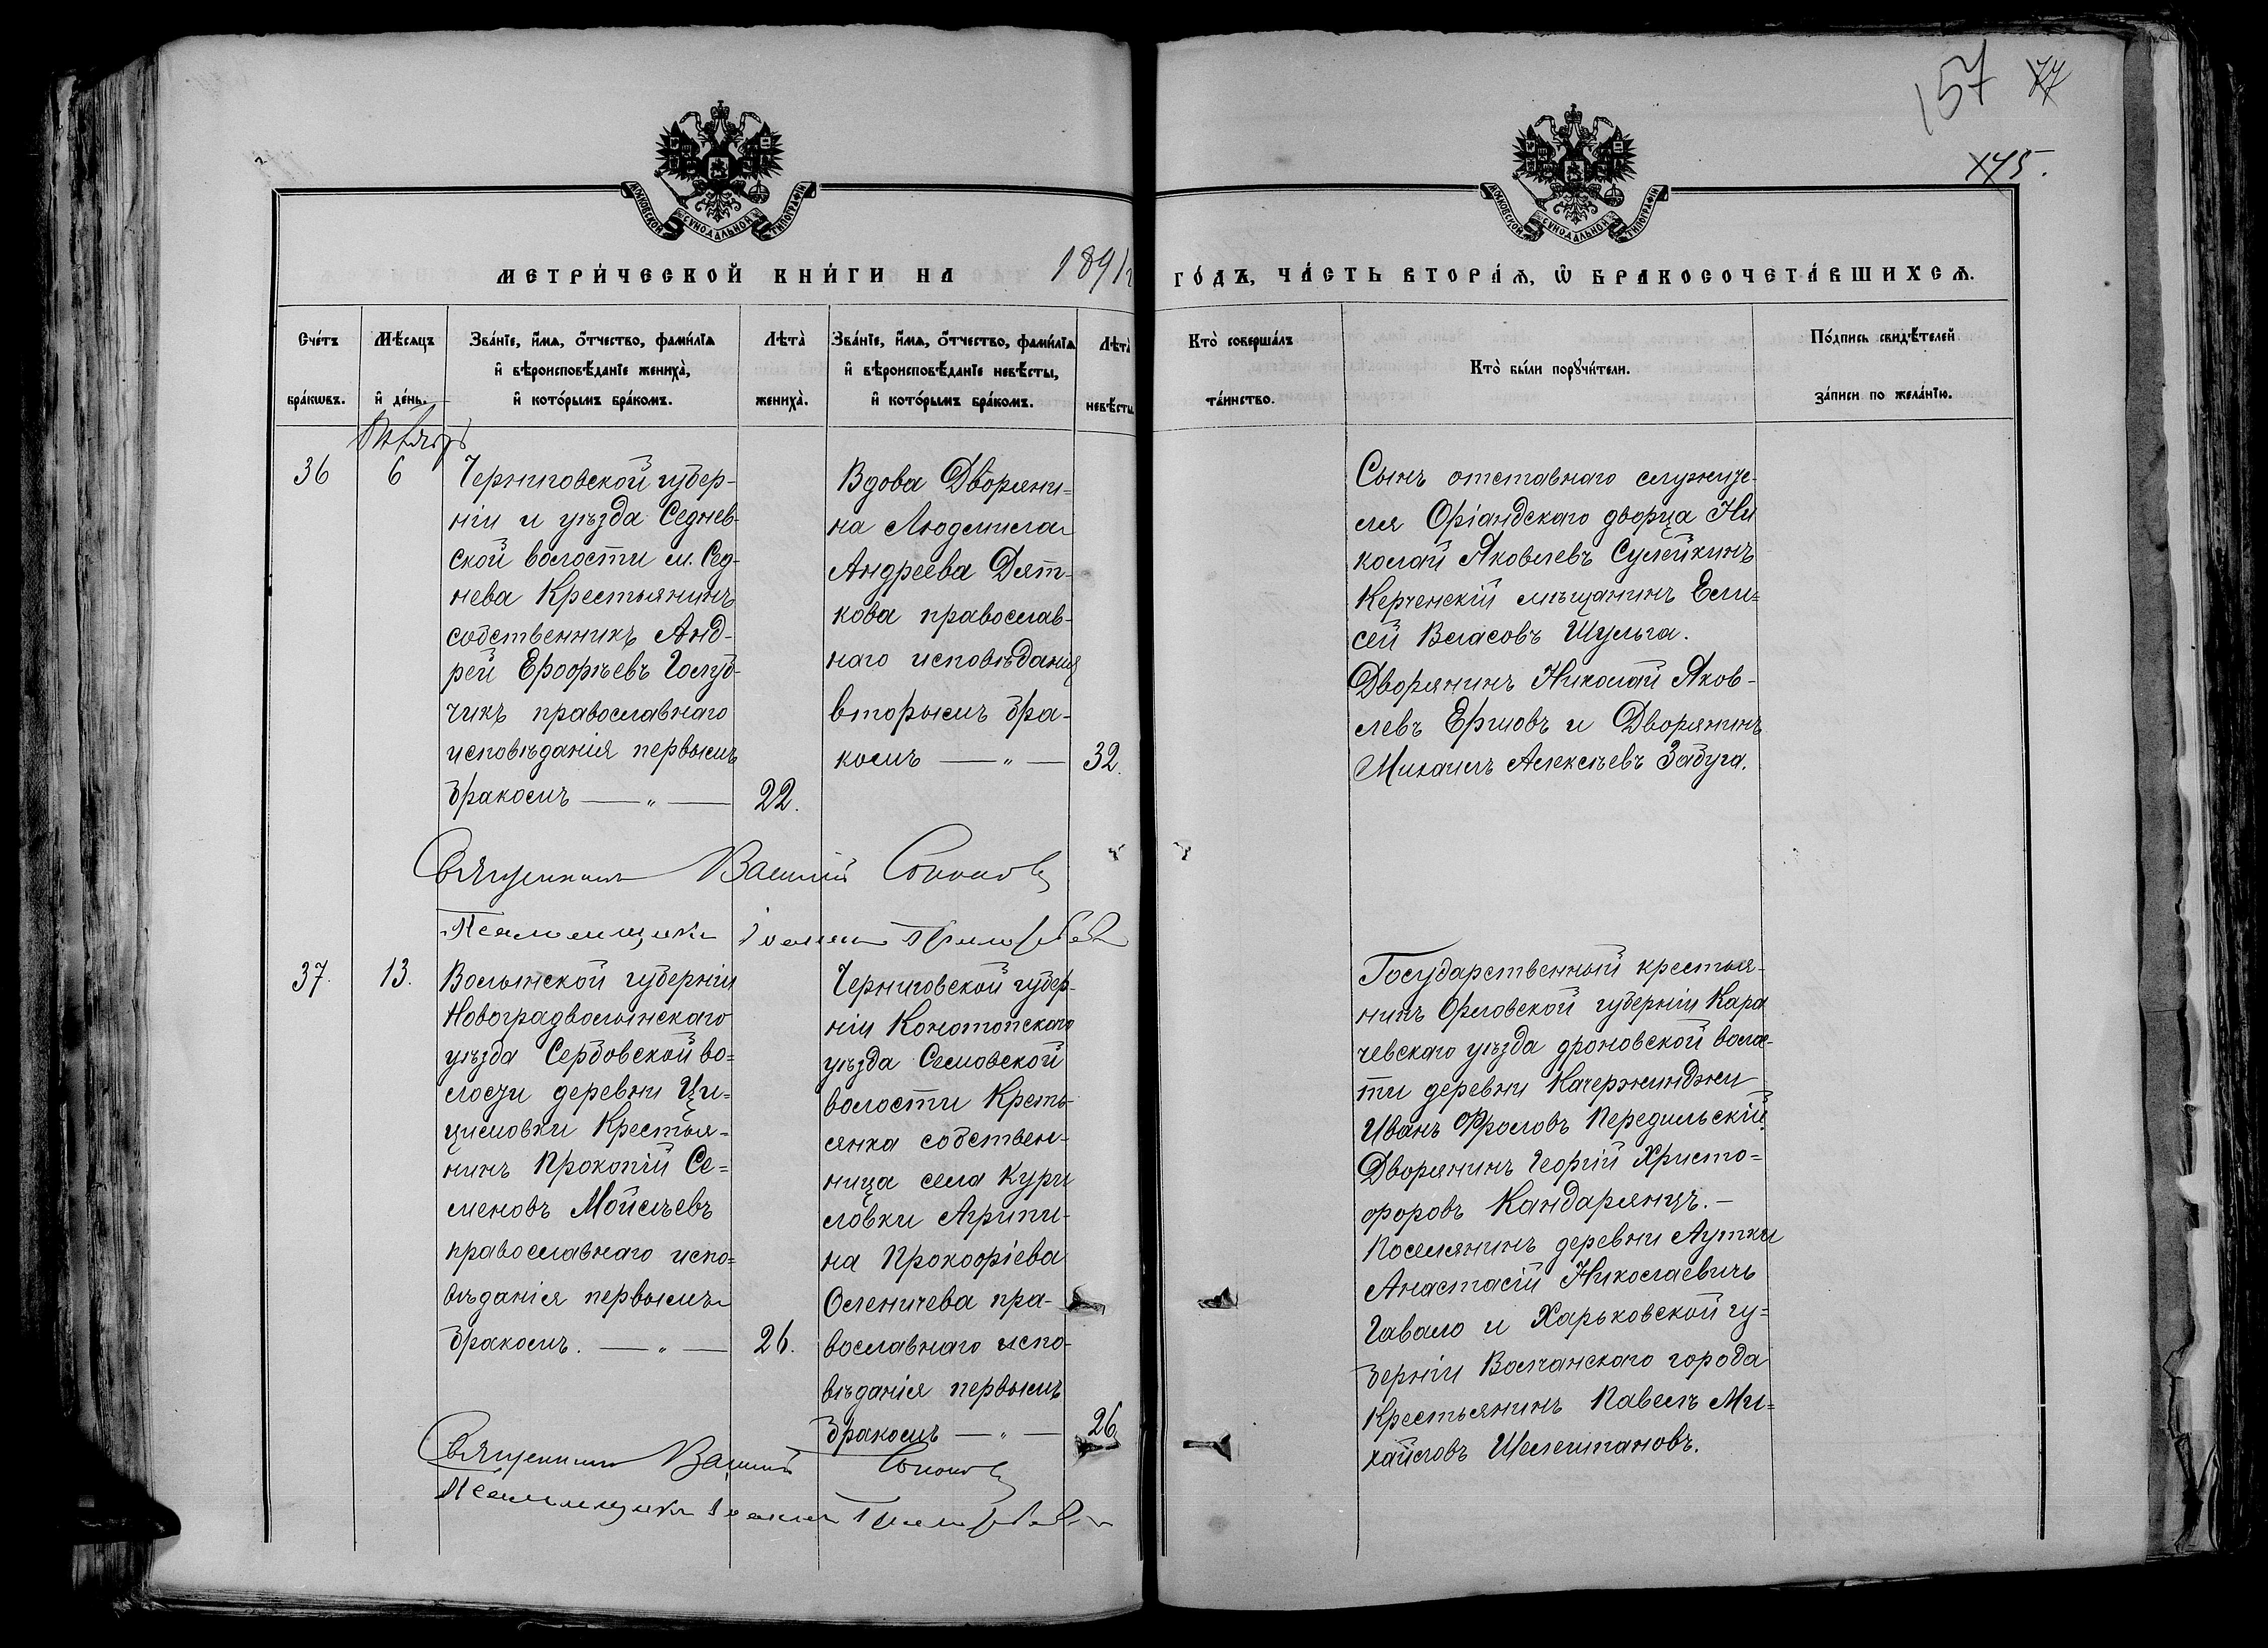 157 77
175.
МОСКОВСКОЙ СѴНОДАЛЬНОЙ ТИПОГРАФІИ
МОСКОВСКОЙ СѴНОДАЛЬНОЙ ТИПОГРАФІИ
МЕТРИ́ЧЕСКОЙ КНИ́ГИ НА 1891 г ГО́ДЪ, ЧА́СТЬ ВТОРА́Ѧ, Ѽ БРАКОСОЧЕТА́ВШИХСѦ.
Сче́тъ
бра́кѡвъ.
Мѣ́сѧцъ
и҆ де́нь.
Зва́нїе, и҆́мѧ, ѻ҆́тчество, фами́лїѧ
и҆ вѣроисповѣ́данїе жениха̀,
и҆ кото́рымъ бра́комъ.
Лѣта̀
жениха̀.
Зва́нїе, и҆́мѧ, ѻ҆́тчество, фами́лїѧ
и҆ вѣроисповѣ́данїе невѣ́сты,
и҆ кото́рымъ бра́комъ.
Лѣта̀
невѣ́сты
Кто̀ соверша́лъ
та́инство.
Кто̀ бы́ли порꙋчи́тели.
По́дпись свидѣ́телей
за́писи по жела́нїю.
36
6
Черниговской губер-
ніи и уѣзда Седнев-
ской волости м. Сед-
нева Крестьянинъ
собственникъ Анд-
рей Ерофѣевъ Голуб-
чикъ православнаго
исповѣданія первымъ
бракомъ — „ —
22.
Вдова Дворяни=
на Людмила
Андреева Дят-
кова православ-
наго исповѣданія
вторымъ бра-
комъ — „ —
32.
Сынъ отставнаго служите-
ля Оріандскаго дворца Ни
колай Яковлевъ Сулейкинъ
Керченскій мѣщанинъ Ели=
сей Власовъ Шульга.
Дворянинъ Николай Яков-
левъ Ершовъ и Дворянинъ
Михаилъ Алексѣевъ Забуга.
Священникъ Василій
Псаломщикъ
37.
13.
Волынской губерніи
Новоградволынскаго
уѣзда Сербовской во=
лости деревни Ци=
цмовки Крестья=
нинъ Прокопій Се=
меновъ Мойсѣевъ
православнаго испо=
вѣданія первымъ
бракомъ. — „ —
26.
Черниговской губер-
ніи Конотопскаго
уѣзда
волости Кресть-
янка собствен-
ница села Кури
ловки Агрипи-
на Прокофіева
Оленичева пра-
вославнаго испо-
вѣданія первымъ
бракомъ — „ —
26.
Государственный крестья-
нинъ Орловской губерніи Кара
чевскаго уѣзда дроновской волос-
ти деревни
Иванъ Фроловъ Передильскій.
Дворянинъ Георгій Христо=
форовъ Кандарянцъ. —
Поселянинъ деревни Аутки
Анастасій Николаевичъ
Гавало и Харьковской гу=
берніи Волчанскаго города
Крестьянинъ Павелъ Ми=
хайловъ Шелештановъ.
Священникъ Василій
Псаломщикъ